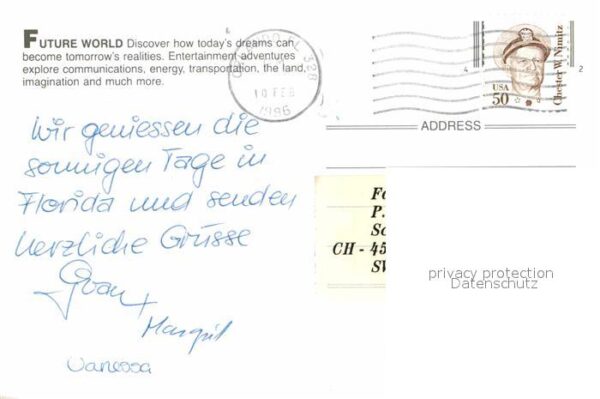 FUTURE WORLD Discover how today's dreams can
become tomorrow's realities. Entertainment adventures
explore communications, energy, transportation, the land,
imagination and much more.
FL 328
10 FEB
1996
Chester W. Nimitz
USA
50
4
2
ADDRESS
Wir geniessen die
sonnigen Tage in
Florida und senden
herzliche Grüsse
+
Margrit
Vanessa
P.
CH - 45
privacy protection
Datenschutz